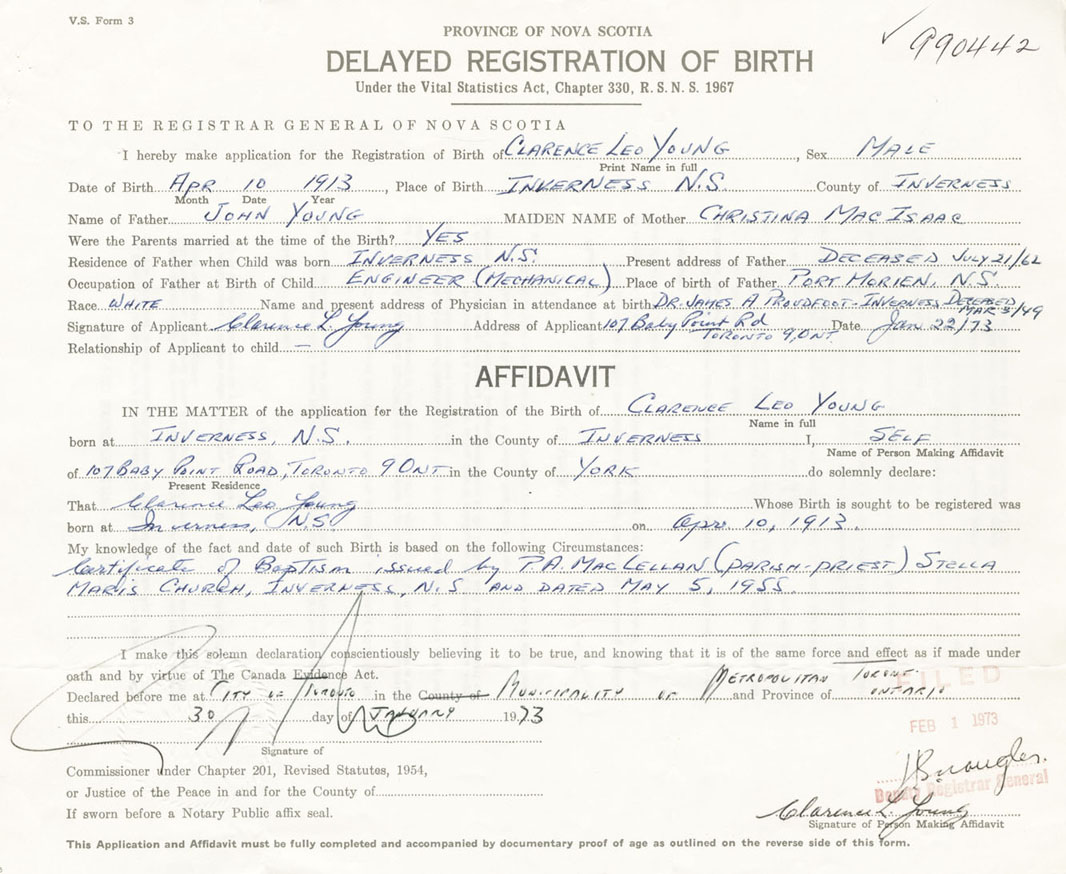 V.S. Form 3
PROVINCE OF NOVA SCOTIA
✓ 990442
DELAYED REGISTRATION OF BIRTH
Under the Vital Statistics Act, Chapter 330, R.S.N.S. 1967
TO THE REGISTRAR GENERAL OF NOVA SCOTIA
I hereby make application for the Registration of Birth of CLARENCE LEO YOUNG, Sex MALE
Print Name in full
Date of Birth APR 10 1913, Place of Birth INVERNESS N.S. County of INVERNESS
Month Date Year
Name of Father JOHN YOUNG MAIDEN NAME of Mother CHRISTINA MAC ISAAC
Were the Parents married at the time of the Birth? YES
Residence of Father when Child was born INVERNESS N.S. Present address of Father DECEASED JULY 21/62
Occupation of Father at Birth of Child ENGINEER (MECHANICAL) Place of birth of Father PORT MORIEN, N.S.
Race WHITE Name and present address of Physician in attendance at birth DR. JAMES A PROUDFOOT-INVERNESS DECEASED MAR 5/49
Signature of Applicant Clarence L. Young Address of Applicant 107 Baby Point Rd Date Jan 22/73
TORONTO 9, ONT
Relationship of Applicant to child —
AFFIDAVIT
IN THE MATTER of the application for the Registration of the Birth of CLARENCE LEO YOUNG
Name in full
born at INVERNESS, N.S. in the County of INVERNESS I, SELF
Name of Person Making Affidavit
of 107 BABY POINT ROAD, TORONTO 9 ONT in the County of YORK do solemnly declare:
Present Residence
That Clarence Leo Young Whose Birth is sought to be registered was
born at Inverness, N.S on Apr. 10, 1913.
My knowledge of the fact and date of such Birth is based on the following Circumstances:
Certificate of Baptism issued by P.A. MACLELLAN (PARISH-PRIEST) STELLA
MARIS CHURCH, INVERNESS, N.S AND DATED MAY 5, 1955.
I make this solemn declaration conscientiously believing it to be true, and knowing that it is of the same force and effect as if made under
oath and by virtue of The Canada Evidence Act.
FILED
Declared before me at CITY OF TORONTO in the County of MUNICIPALITY OF METROPOLITAN TORONTO and Province of ONTARIO
this 30 day of JANUARY 1973
FEB 1 1973
Signature of
Commissioner under Chapter 201, Revised Statutes, 1954,
or Justice of the Peace in and for the County of
Deputy Registrar General
If sworn before a Notary Public affix seal.
Clarence L. Young
Signature of Person Making Affidavit
This Application and Affidavit must be fully completed and accompanied by documentary proof of age as outlined on the reverse side of this form.